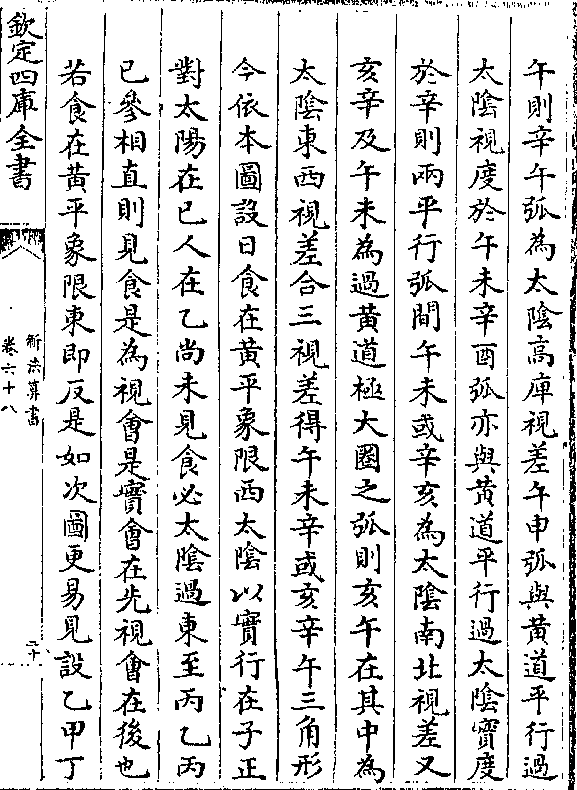 午則辛午弧為太陰高庫視差午申弧與黃道平行過
太陰視度於午未辛酉弧亦與黃道平行過太陰實度
於辛則兩平行弧間午未或辛亥為太陰南北視差又
亥辛及午未為過黃道極大圈之弧則亥午在其中為
太陰東西視差合三視差得午未辛或亥辛午三角形
今依本圖設日食在黃平象限西太陰以實行在子正
對太陽在已人在乙尚未見食必太陰過東至丙乙丙
已參相直則見食是為視會是實會在先視會在後也
若食在黃平象限東即反是如次圖更易見設乙甲丁
欽定四庫全書
新法算書
卷六十八
二十